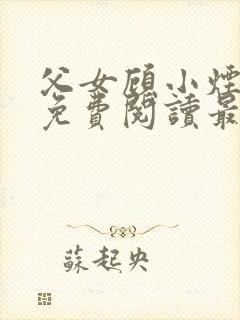 父女顾小煙
免費閱讀最
蘇起央